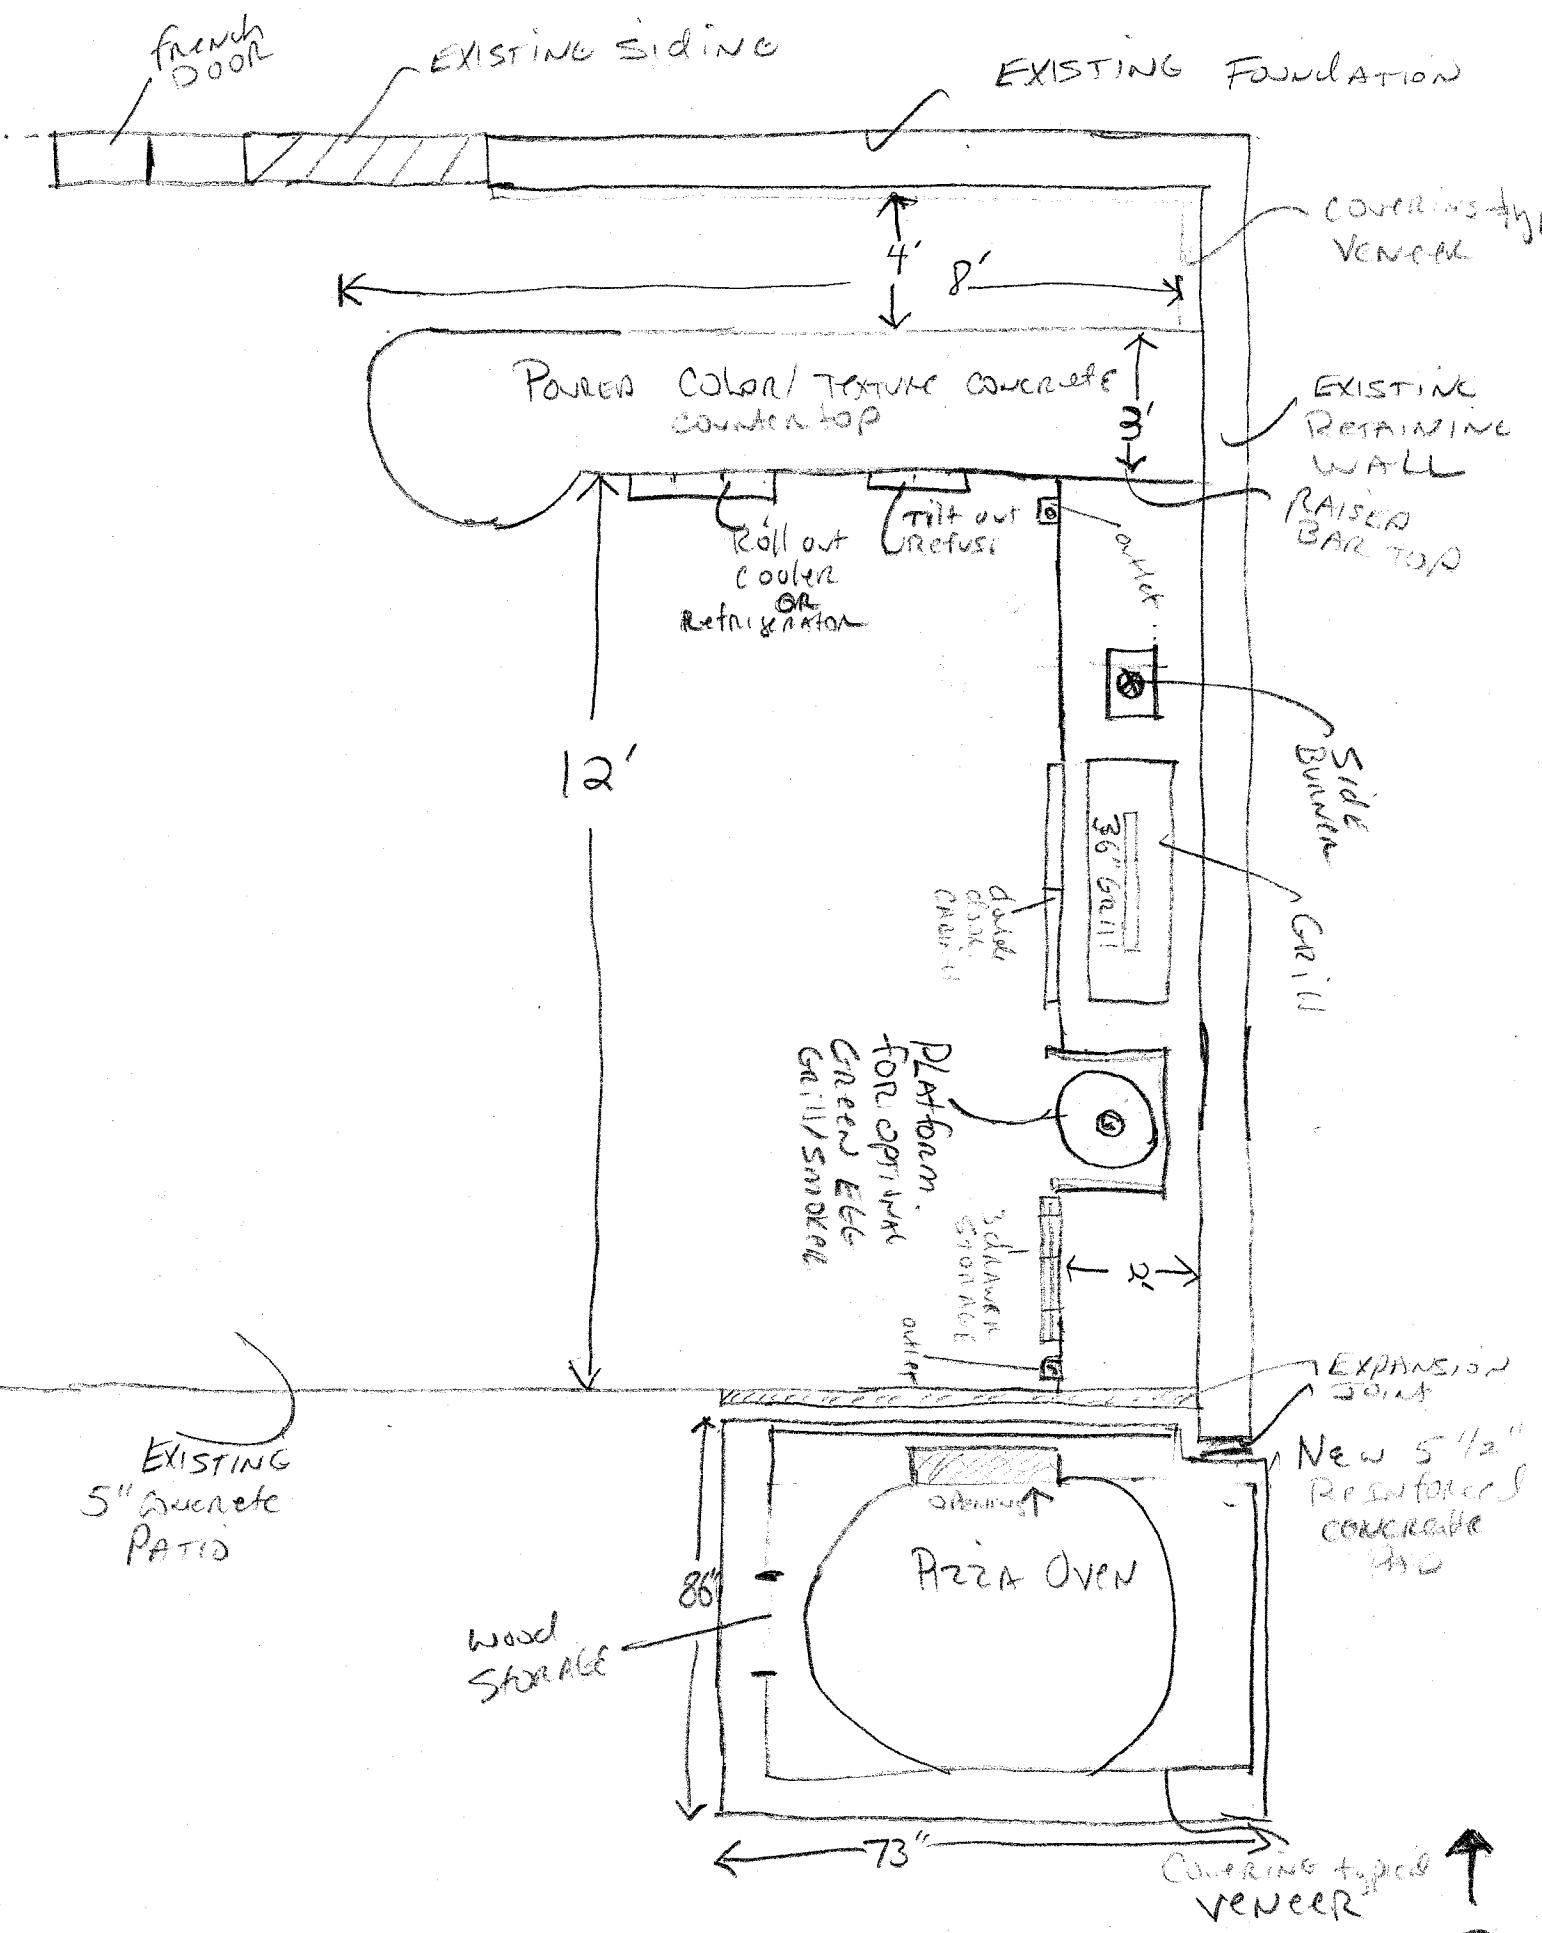 FRENCH
DOOR
EXISTING SIDING
EXISTING FOUNDATION
COVERING
VENEER
4'
8'
POURED COLOR/ TEXTURE CONCRETE
COUNTERTOP
3'
EXISTING
RETAINING
WALL
RAISED
BAR TOP
Roll out
COOLER
OR
REFRIGERATOR
TILT out
REFUSE
outlet
12'
SIDE
BURNER
36" GRILL
GRILL
double
door
PLATFORM
FOR OPTIONAL
GREEN EGG
GRILL/SMOKER
3 DRAWER
STORAGE
2'
outlet
EXPANSION
JOINT
EXISTING
5" CONCRETE
PATIO
NEW 5 1/2"
REINFORCED
CONCRETE
PAD
OPENING
PIZZA OVEN
86"
WOOD
STORAGE
73"
COVERING typical
VENEER